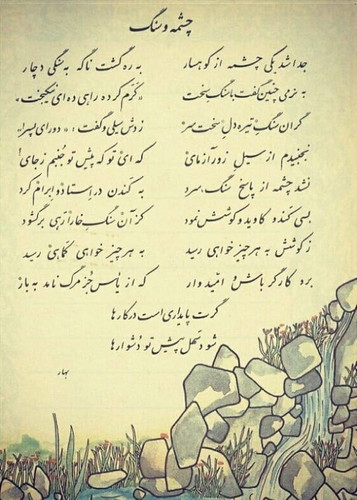 چشمه و سنگ
جدا شد یکی چشمه از کوهسار به ره گشت ناگه به سنگی دچار
به نرمی چنین گفت با سنگ سخت: «کرم کرده راهی ده ای نیکبخت»
گران سنگ تیره دل سخت سر زدش سیلی و گفت: «دور ای پسر!
نجنبیدم از سیل زورآزمای که ای تو که پیش تو جنبم ز جای!»
نشد چشمه از پاسخ سنگ، سرد به کندن در استاد و ابرام کرد
بسی کند و کاوید و کوشش نمود کز آن سنگ خارا رهی برگشود
ز کوشش به هر چیز خواهی رسید به هر چیز خواهی کماهی رسید
برو کارگر باش و امیدوار که از یأس جز مرگ ناید به بار
گرت پایداری است در کارها
شود سهل پیش تو دشوارها
بهار